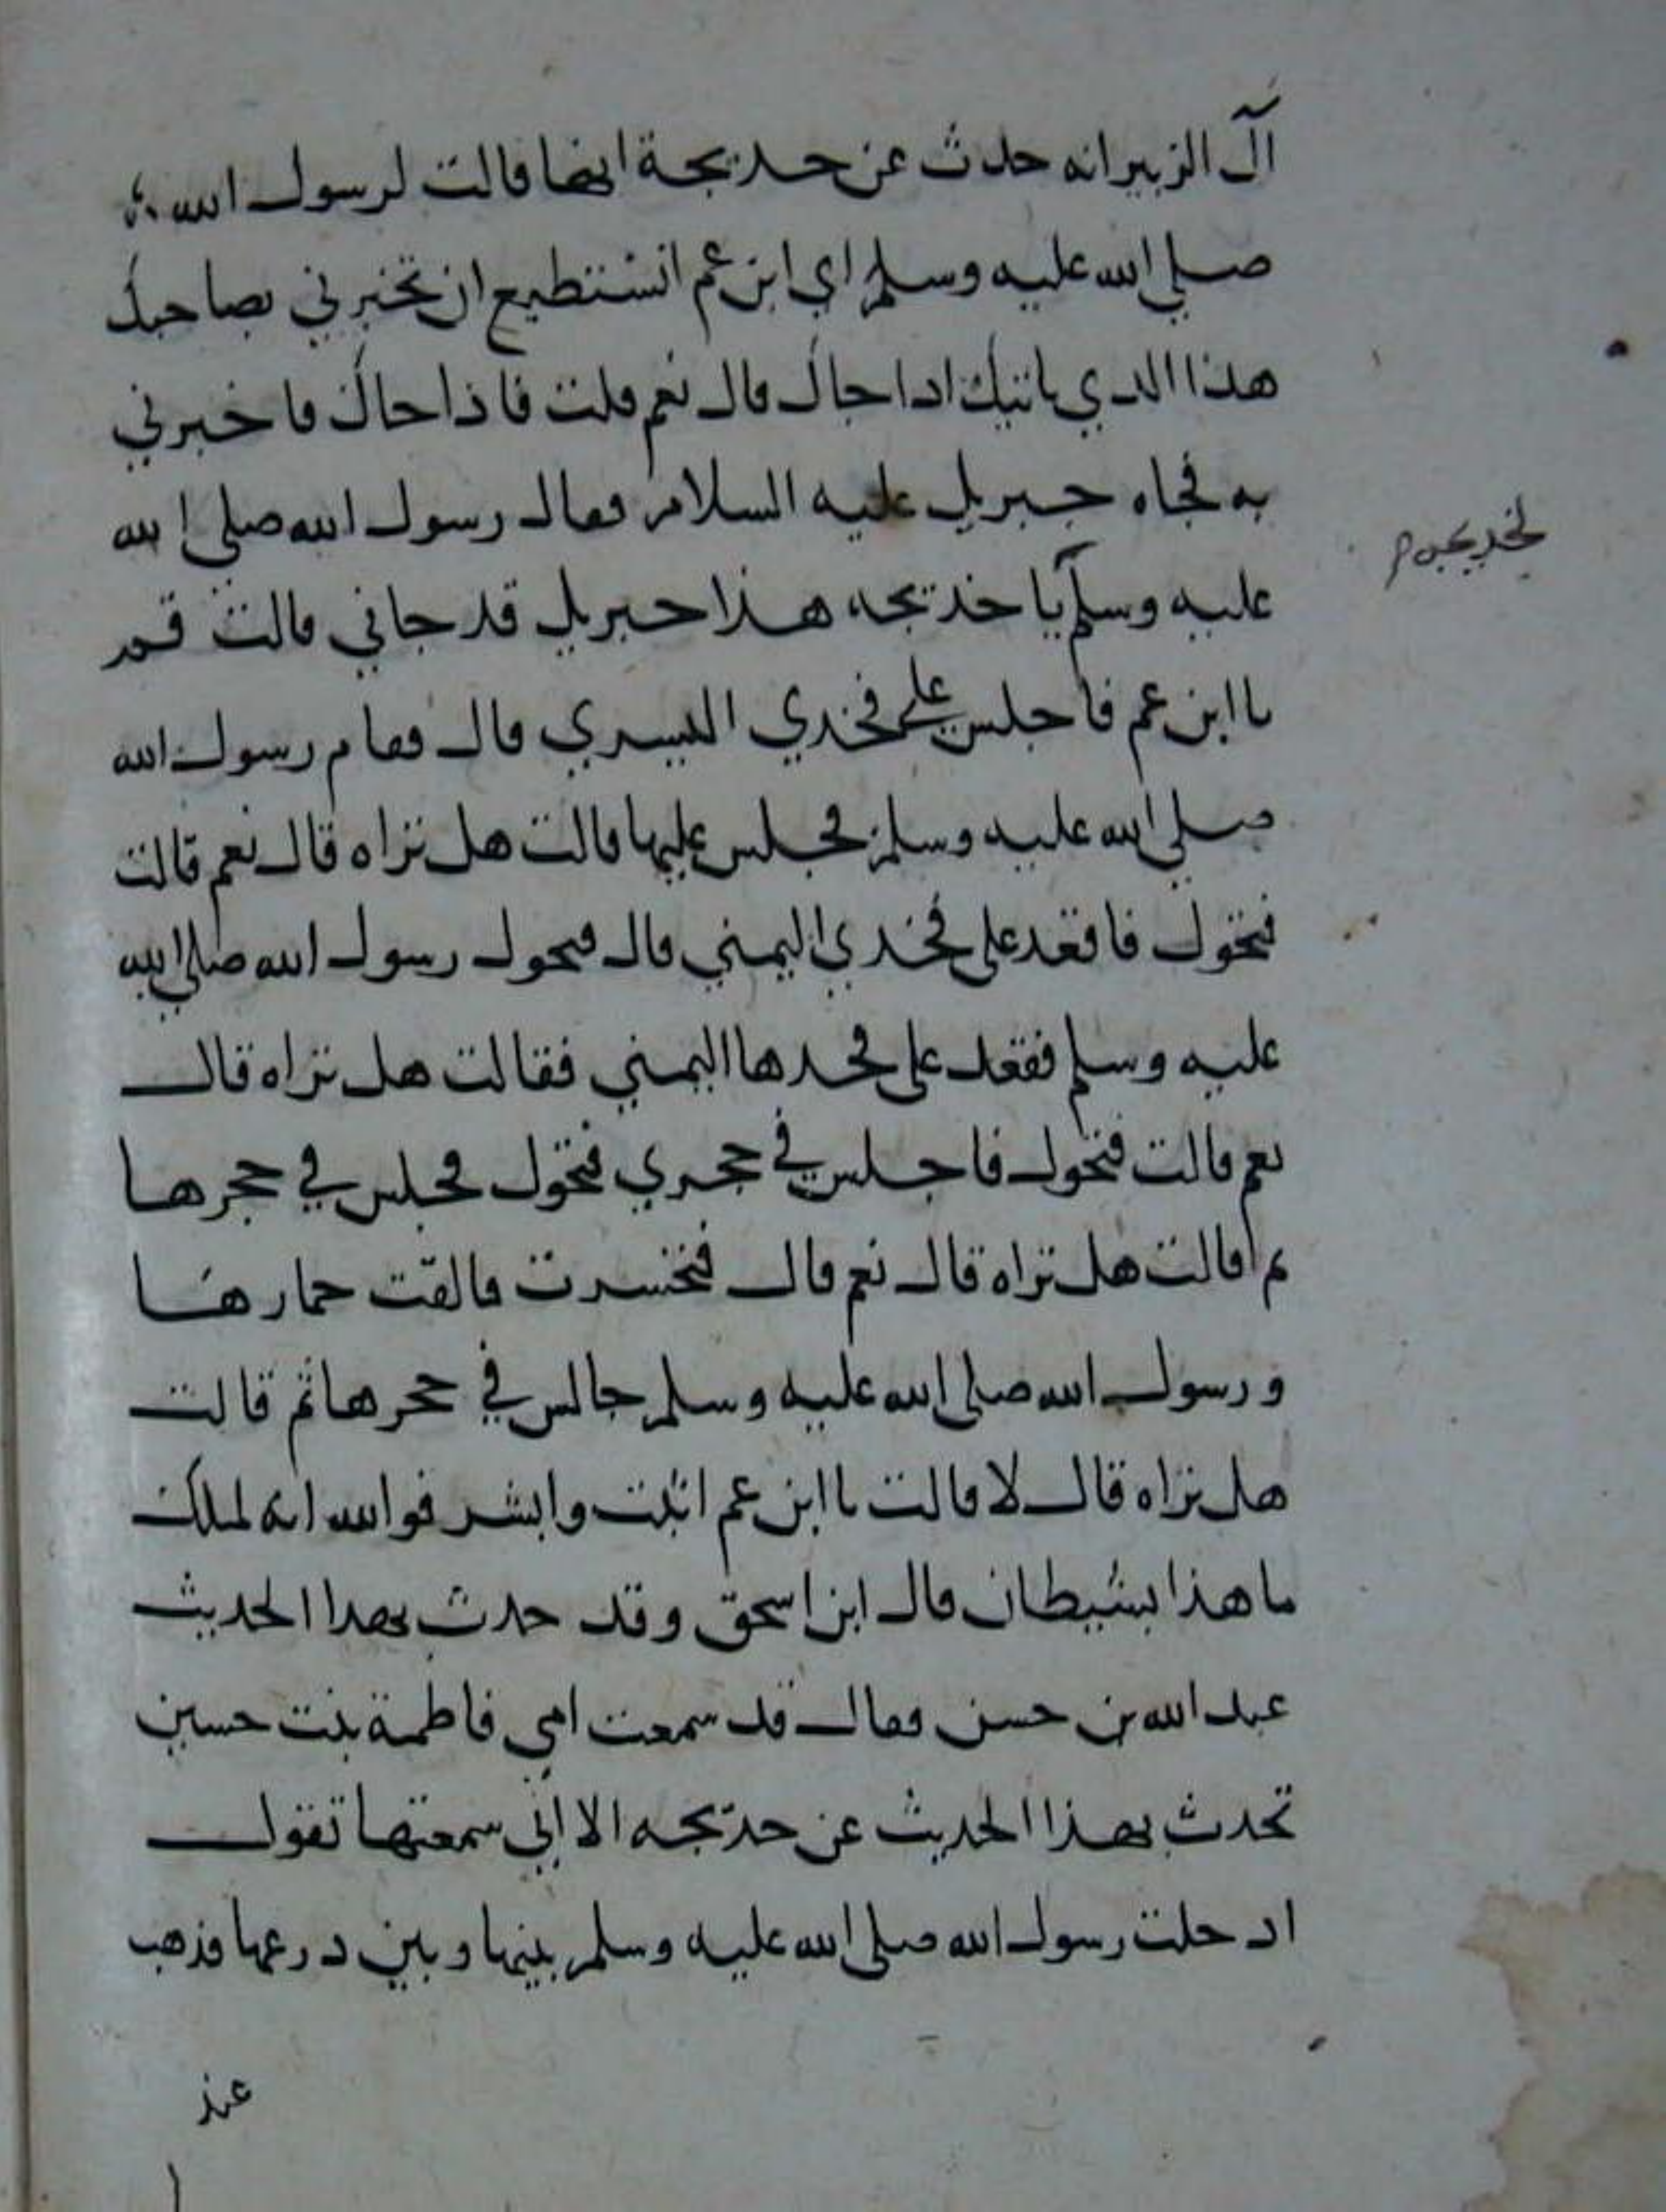 آل الزبير انه حدث عن خديجة انها قالت لرسول الله
صلى الله عليه وسلم اي ابن عم اتستطيع ان تخبرني بصاحبك
هذا الذي ياتيك اذا جاك قال نعم قلت فاذا جاك فاخبرني
به فجاه جبريل عليه السلام فقال رسول الله صلى الله
لخديجه
عليه وسلم يا خديجه هذا جبريل قد جاني قالت قم
يا ابن عم فاجلس على فخذي اليسري قال فقام رسول الله
صلى الله عليه وسلم فجلس عليها قالت هل تراه قال نعم قالت
فتحول فاقعد على فخذي اليمني قال فتحول رسول الله صلى الله
عليه وسلم فقعد على فخذها اليمني فقالت هل تراه قال
نعم قالت فتحول فاجلس في حجري فتحول فجلس في حجرها
ثم قالت هل تراه قال نعم قال فتحسرت والقت خمارها
ورسول الله صلى الله عليه وسلم جالس في حجرها ثم قالت
هل تراه قال لا قالت يا ابن عم اثبت وابشر فوالله انه لملك
ما هذا بشيطان قال ابن اسحق وقد حدث بهذا الحديث
عبد الله بن حسن فقال قد سمعت امي فاطمة بنت حسين
تحدث بهذا الحديث عن خديجه الا اني سمعتها تقول
ادخلت رسول الله صلى الله عليه وسلم بينها وبين درعها فذهب
عند